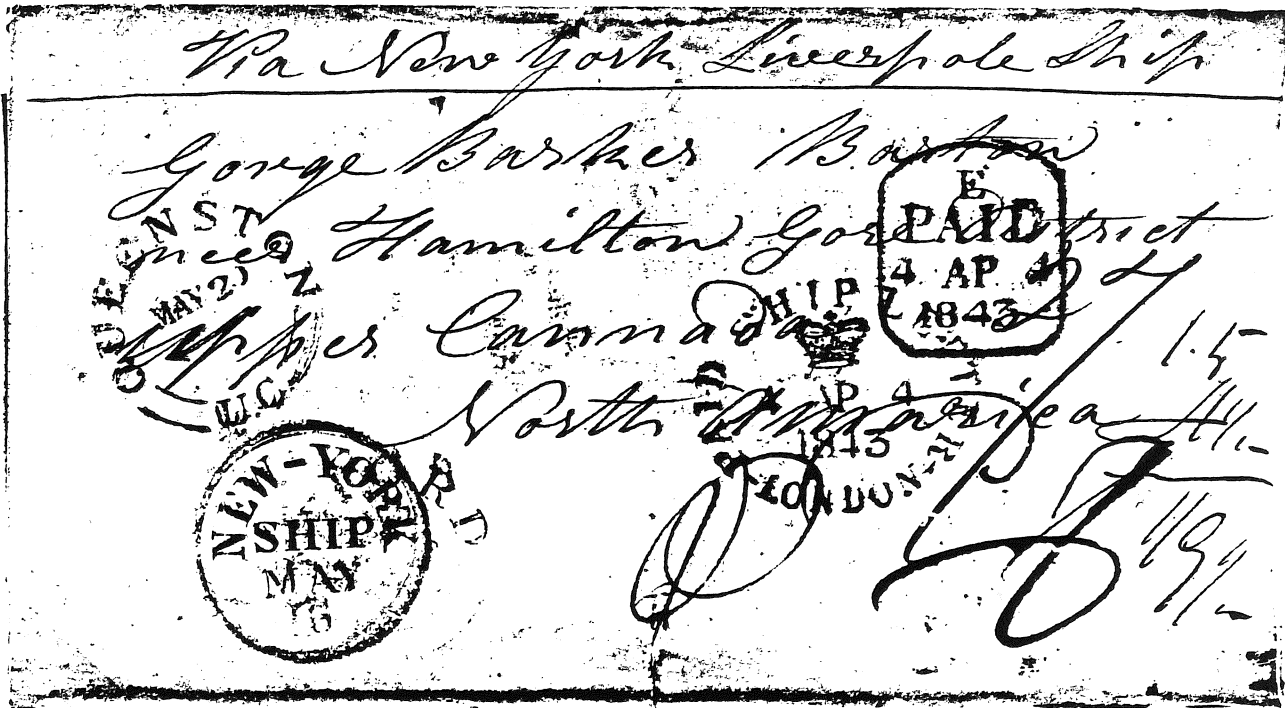 Via New York Liverpole Ship
Gorge Barker Barton
neer Hamilton Gore District
Upper Cannada
North Amarica
E
PAID
4 AP 4
1843
SHIP
AP 4
1843
PAID
LONDON
QUEENSTON
MAY 2
U.C
NEW-YORK
SHIP
MAY
1.5